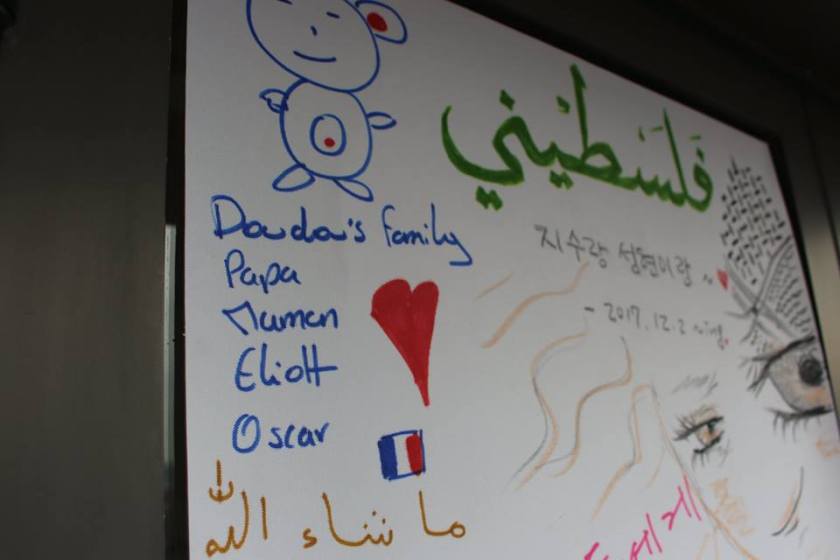 فَلَسْطِيْني
Doudou's family
Papa
Maman
Eliott
Oscar
지수랑 성현이랑 ~ ♥
- 2017. 12. 2
ما شاء الله